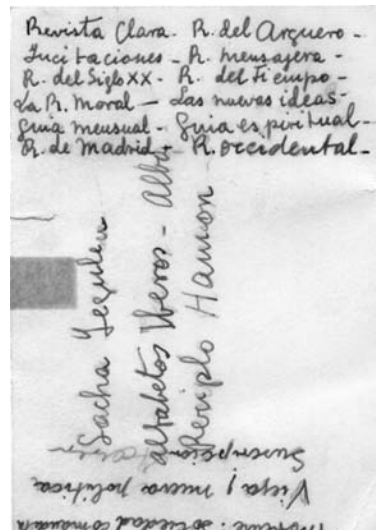 Revista Clara - R. del Arquero -
Incitaciones - R. mensajera -
R. del Siglo XX - R. del Tiempo -
La R. Moral - Las nuevas ideas -
guia mensual - Guia espiritual -
R. de Madrid - R. occidental -
Sacha Yegulev
alfabetos Iberos - Alba
Periplo Hannon
sociedad comandita
Vieja y nueva politica
Suscripcion